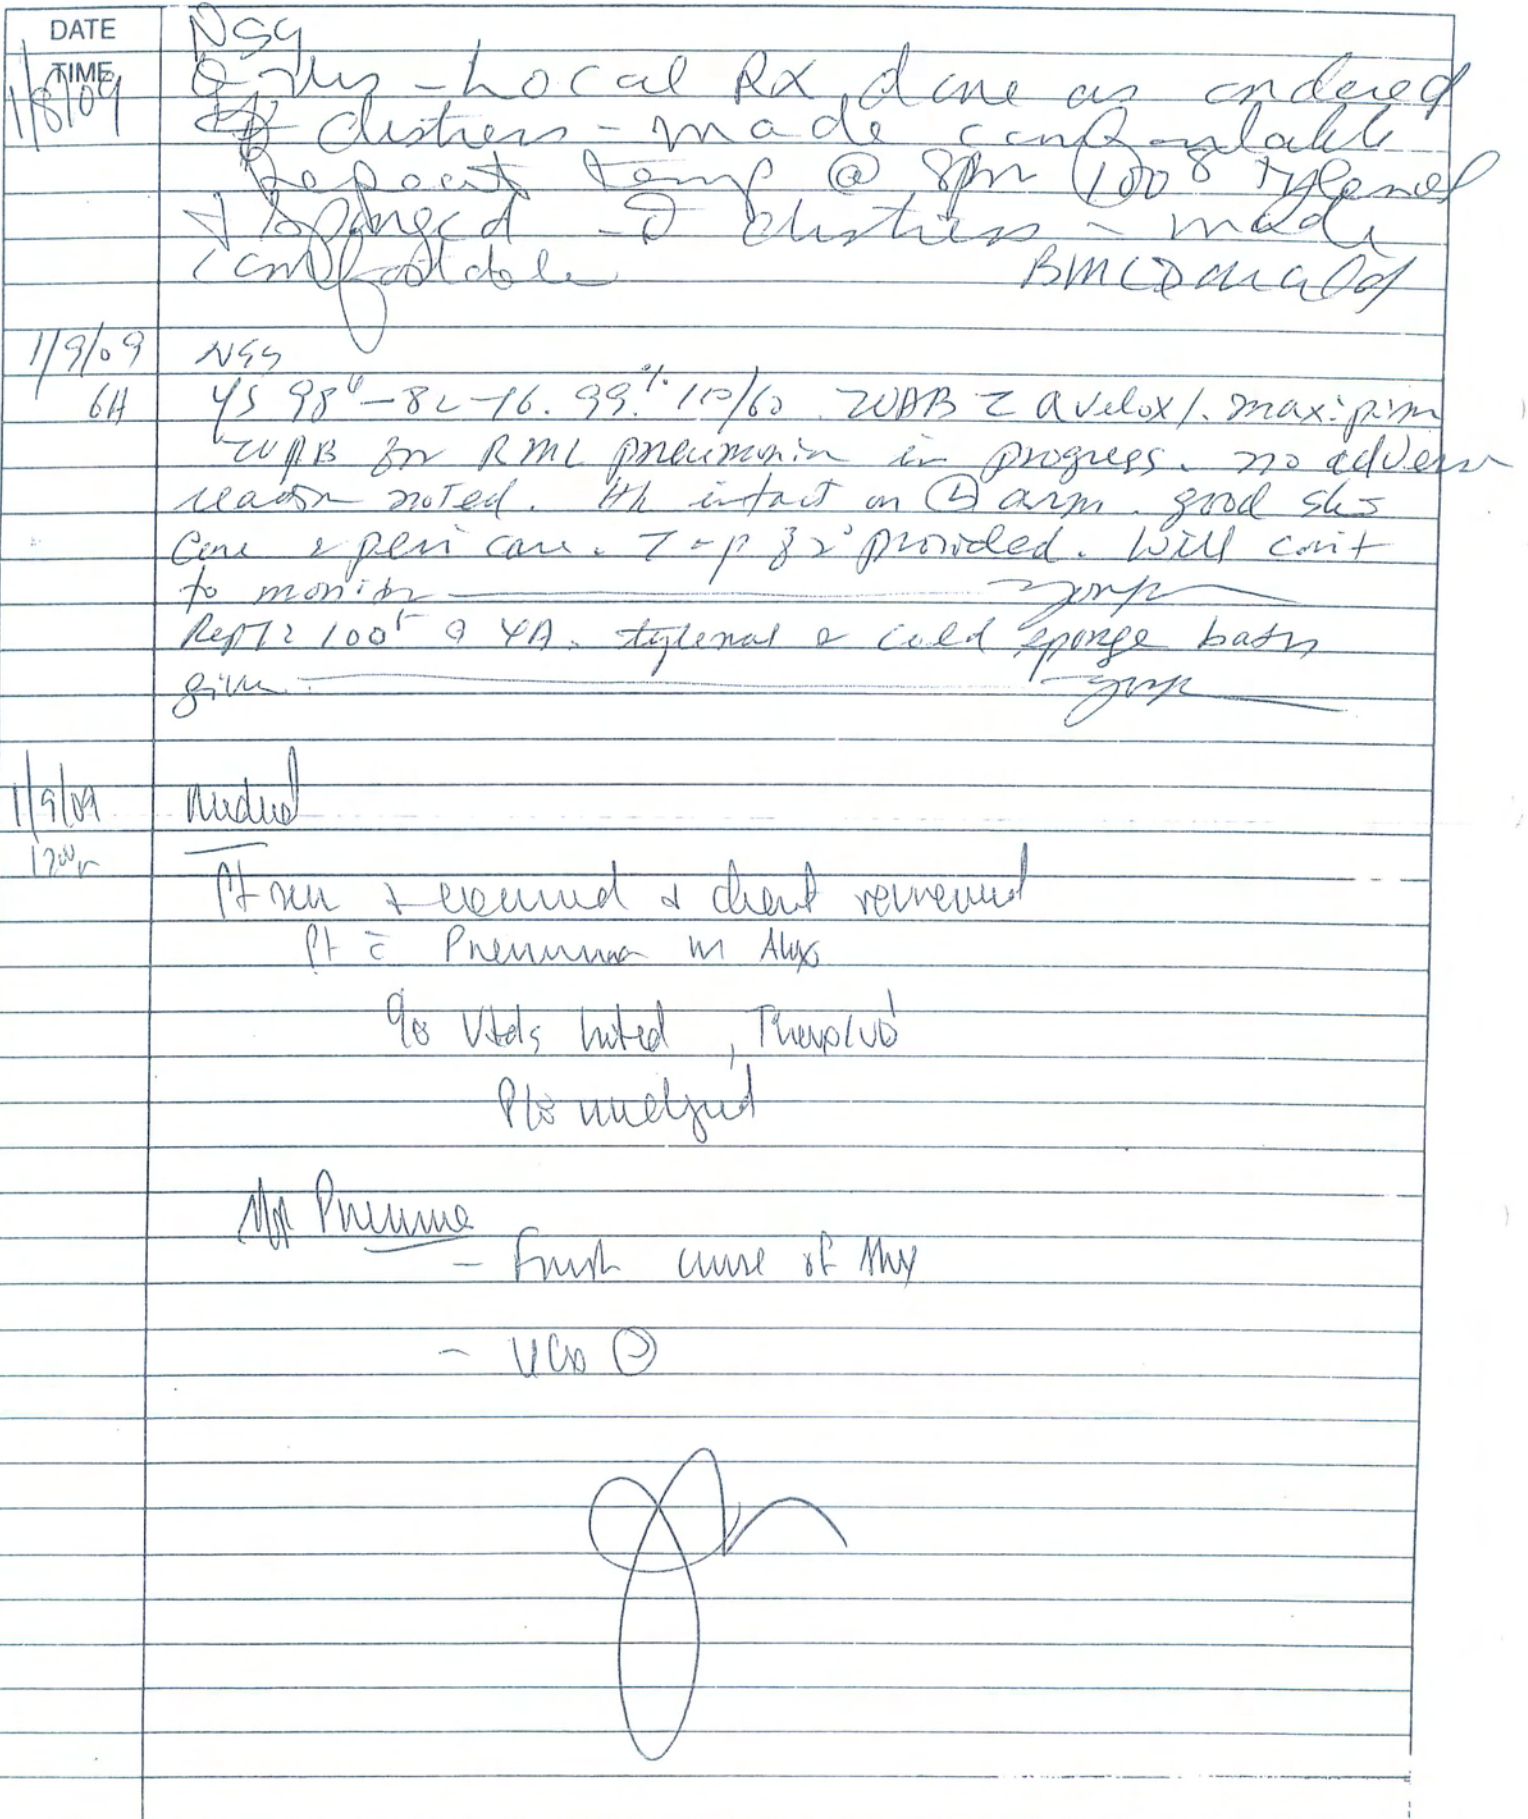 DATE NSG
TIME
1/8/09 - Local Rx done as ordered
distress - made comfortable
Repeat temp @ 8pm 100⁸ Tylenol
+ Sponged - distress - made
comfortable BMcDonald
1/9/09 NSG
6A VS 98 - 82 - 16. 99% 110/60 IVAB c̄ avelox /. maxipim
IVAB for RML pneumonia in progress. no adverse
reaction noted. HL intact on Ⓛ arm. good skin
care & peri care. T + p q 2° provided. Will con't
to monitor
Rept T: 100 @ 4A. tylenol & cold sponge bath
given.
1/9/09 Medical
1200
Pt seen & examined & chart reviewed
Pt c̄ Pneumonia on Abx
Vitals noted,
Pneumonia
- Finish course of Abx
- UCx ⊖